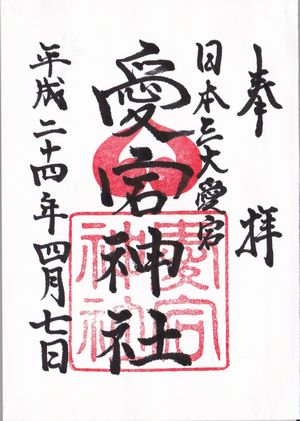 奉拝
日本三大愛宕
愛宕神社
平成二十四年四月七日
愛宕
神社